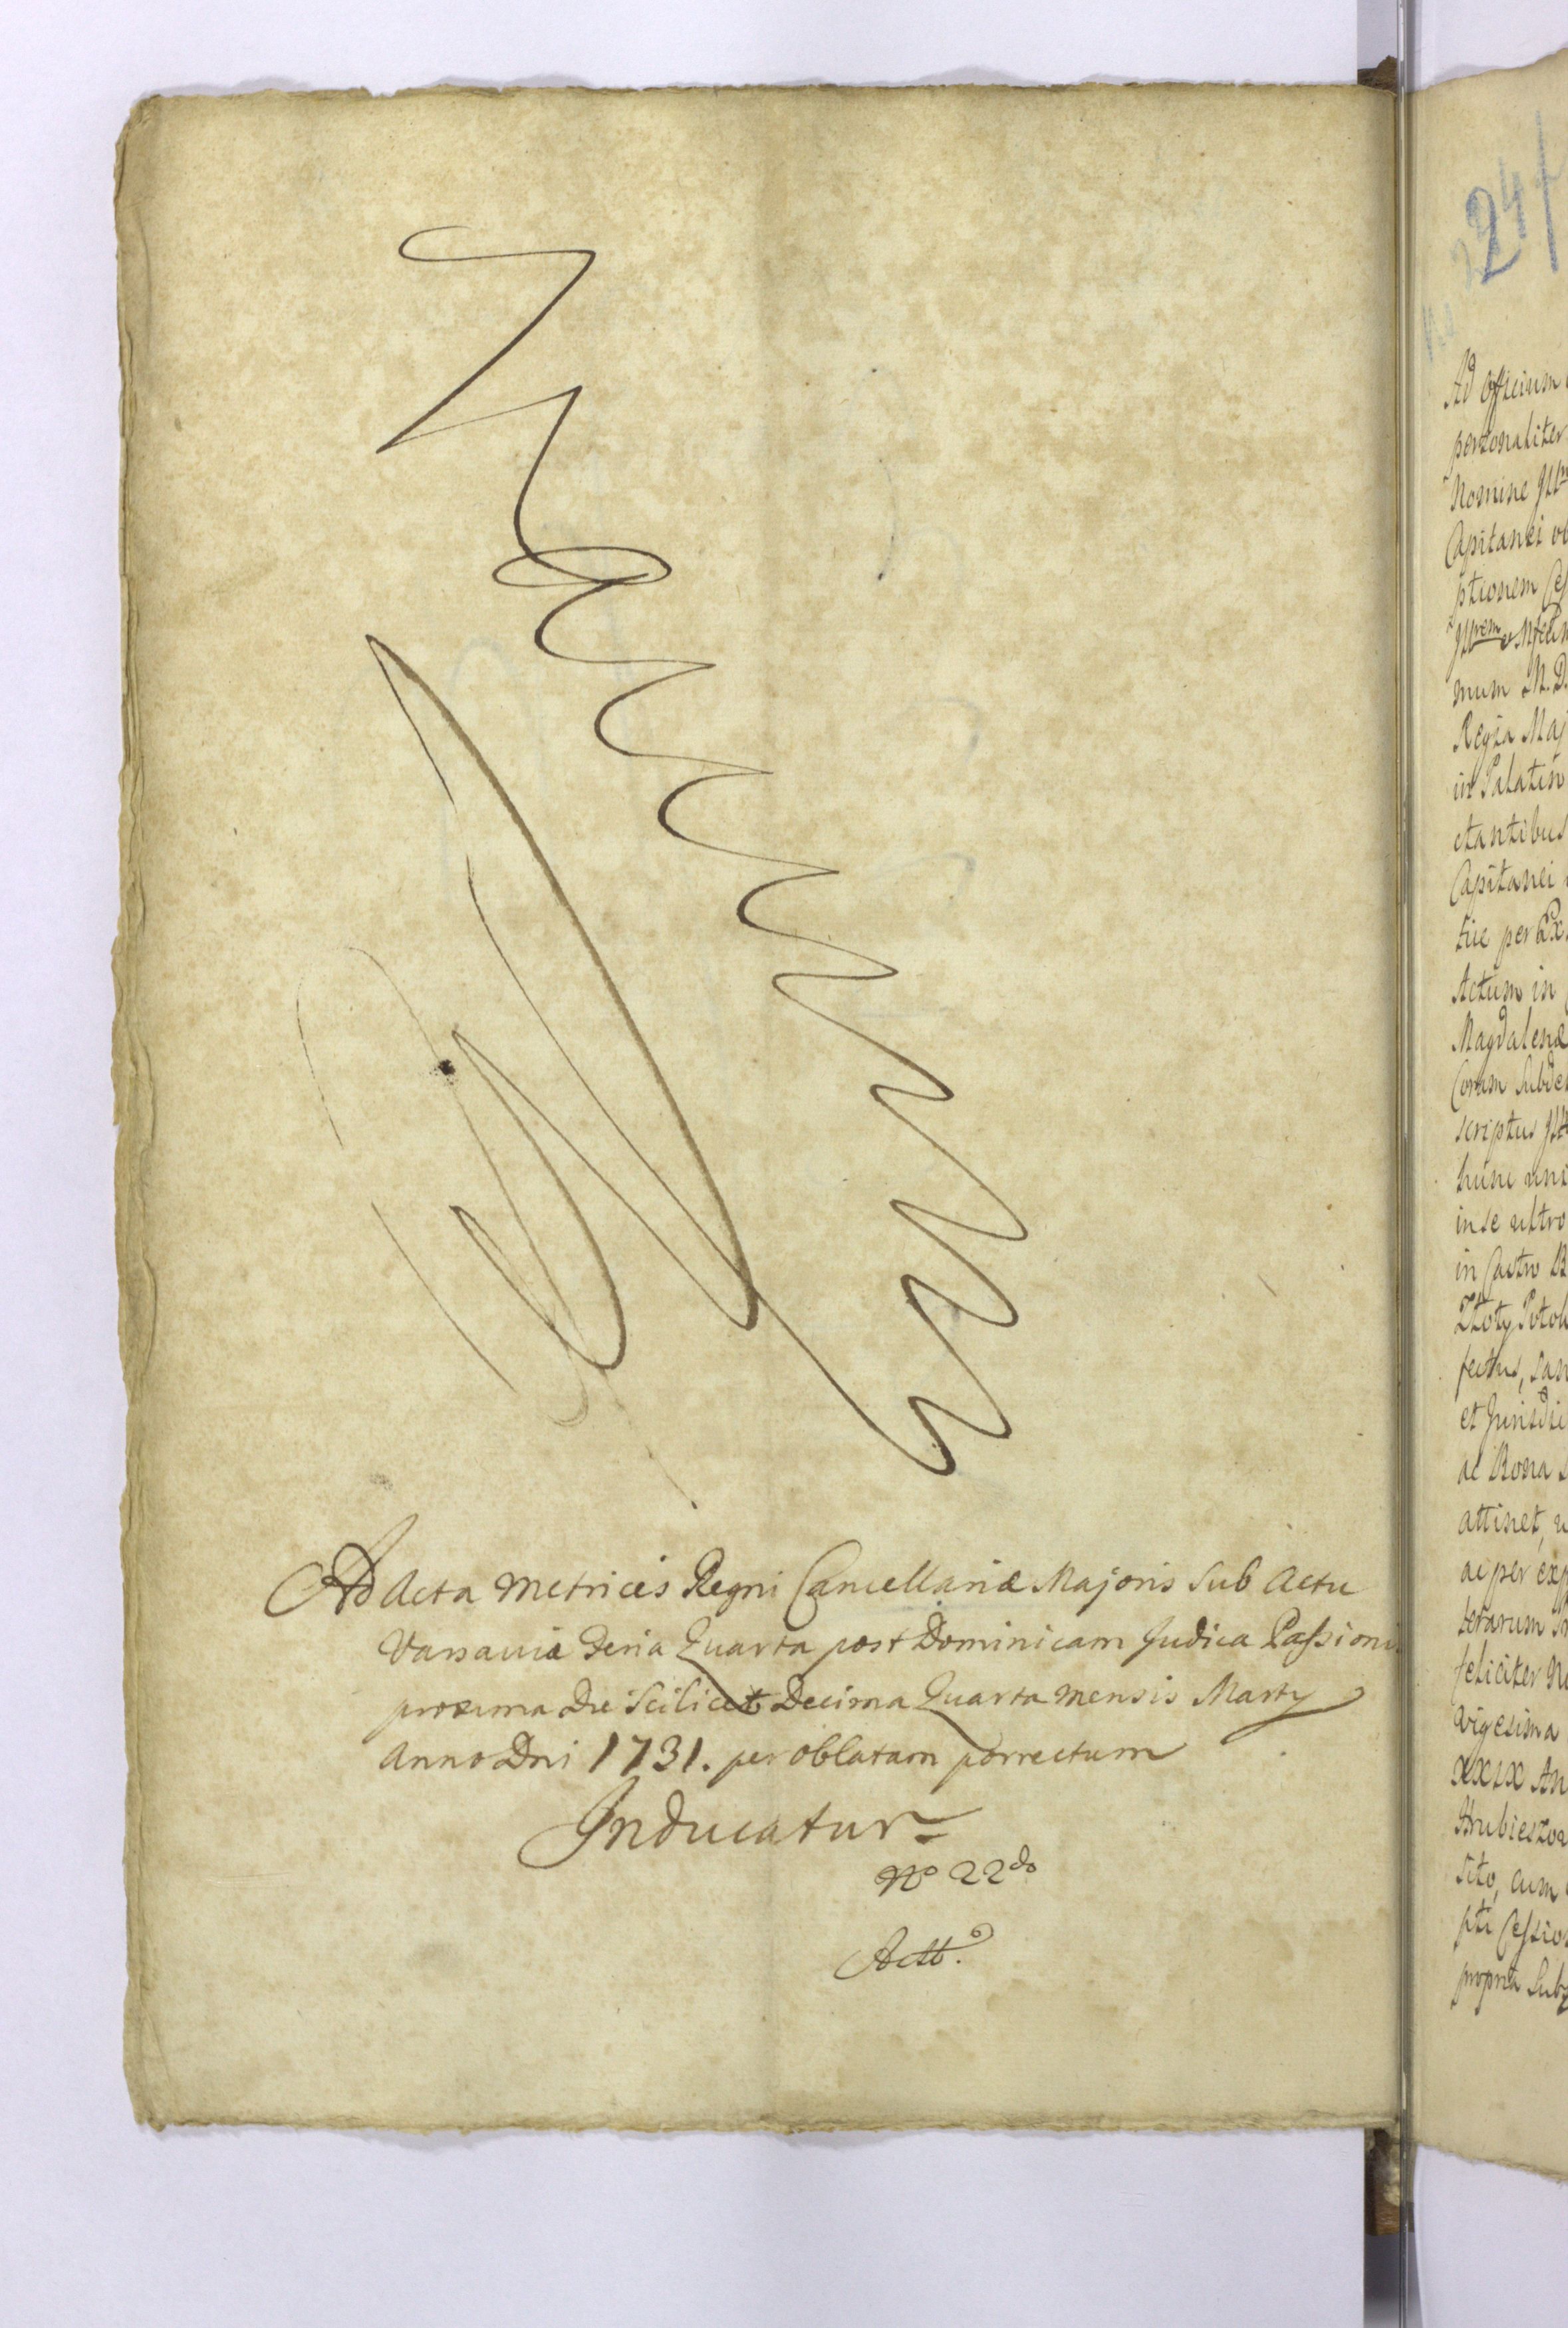 Ad Acta Metrices Regni Cancellariæ Majoris Sub Actu
Varsaviæ Feria Quarta post Dominicam Judica Passionis
proxima Die Scilicet Decima Quarta mensis Marty
Anno Dni 1731. per oblatam porrectum
Inducatur
No 22do
Actt.
24
Ad Officium
personaliter
Nomine Jll
Capitanei
ptionem
Jllrem et Mfcum
mum M.D.
Regia Maj
in Palatin
ctantibus
Capitanei
tue per Ex
Actum in
Magdalenæ
Coram Subde
scriptus Jll
hunc
in se ultro
in Castro B
Złoty Potok
fectus, san
et Jurisdic
ac Bona
attinet,
ac per exp
terarum
feliciter
vigesima
XXIX An
Hrubieszow
sito, cum
pti Cessio
propria Sub